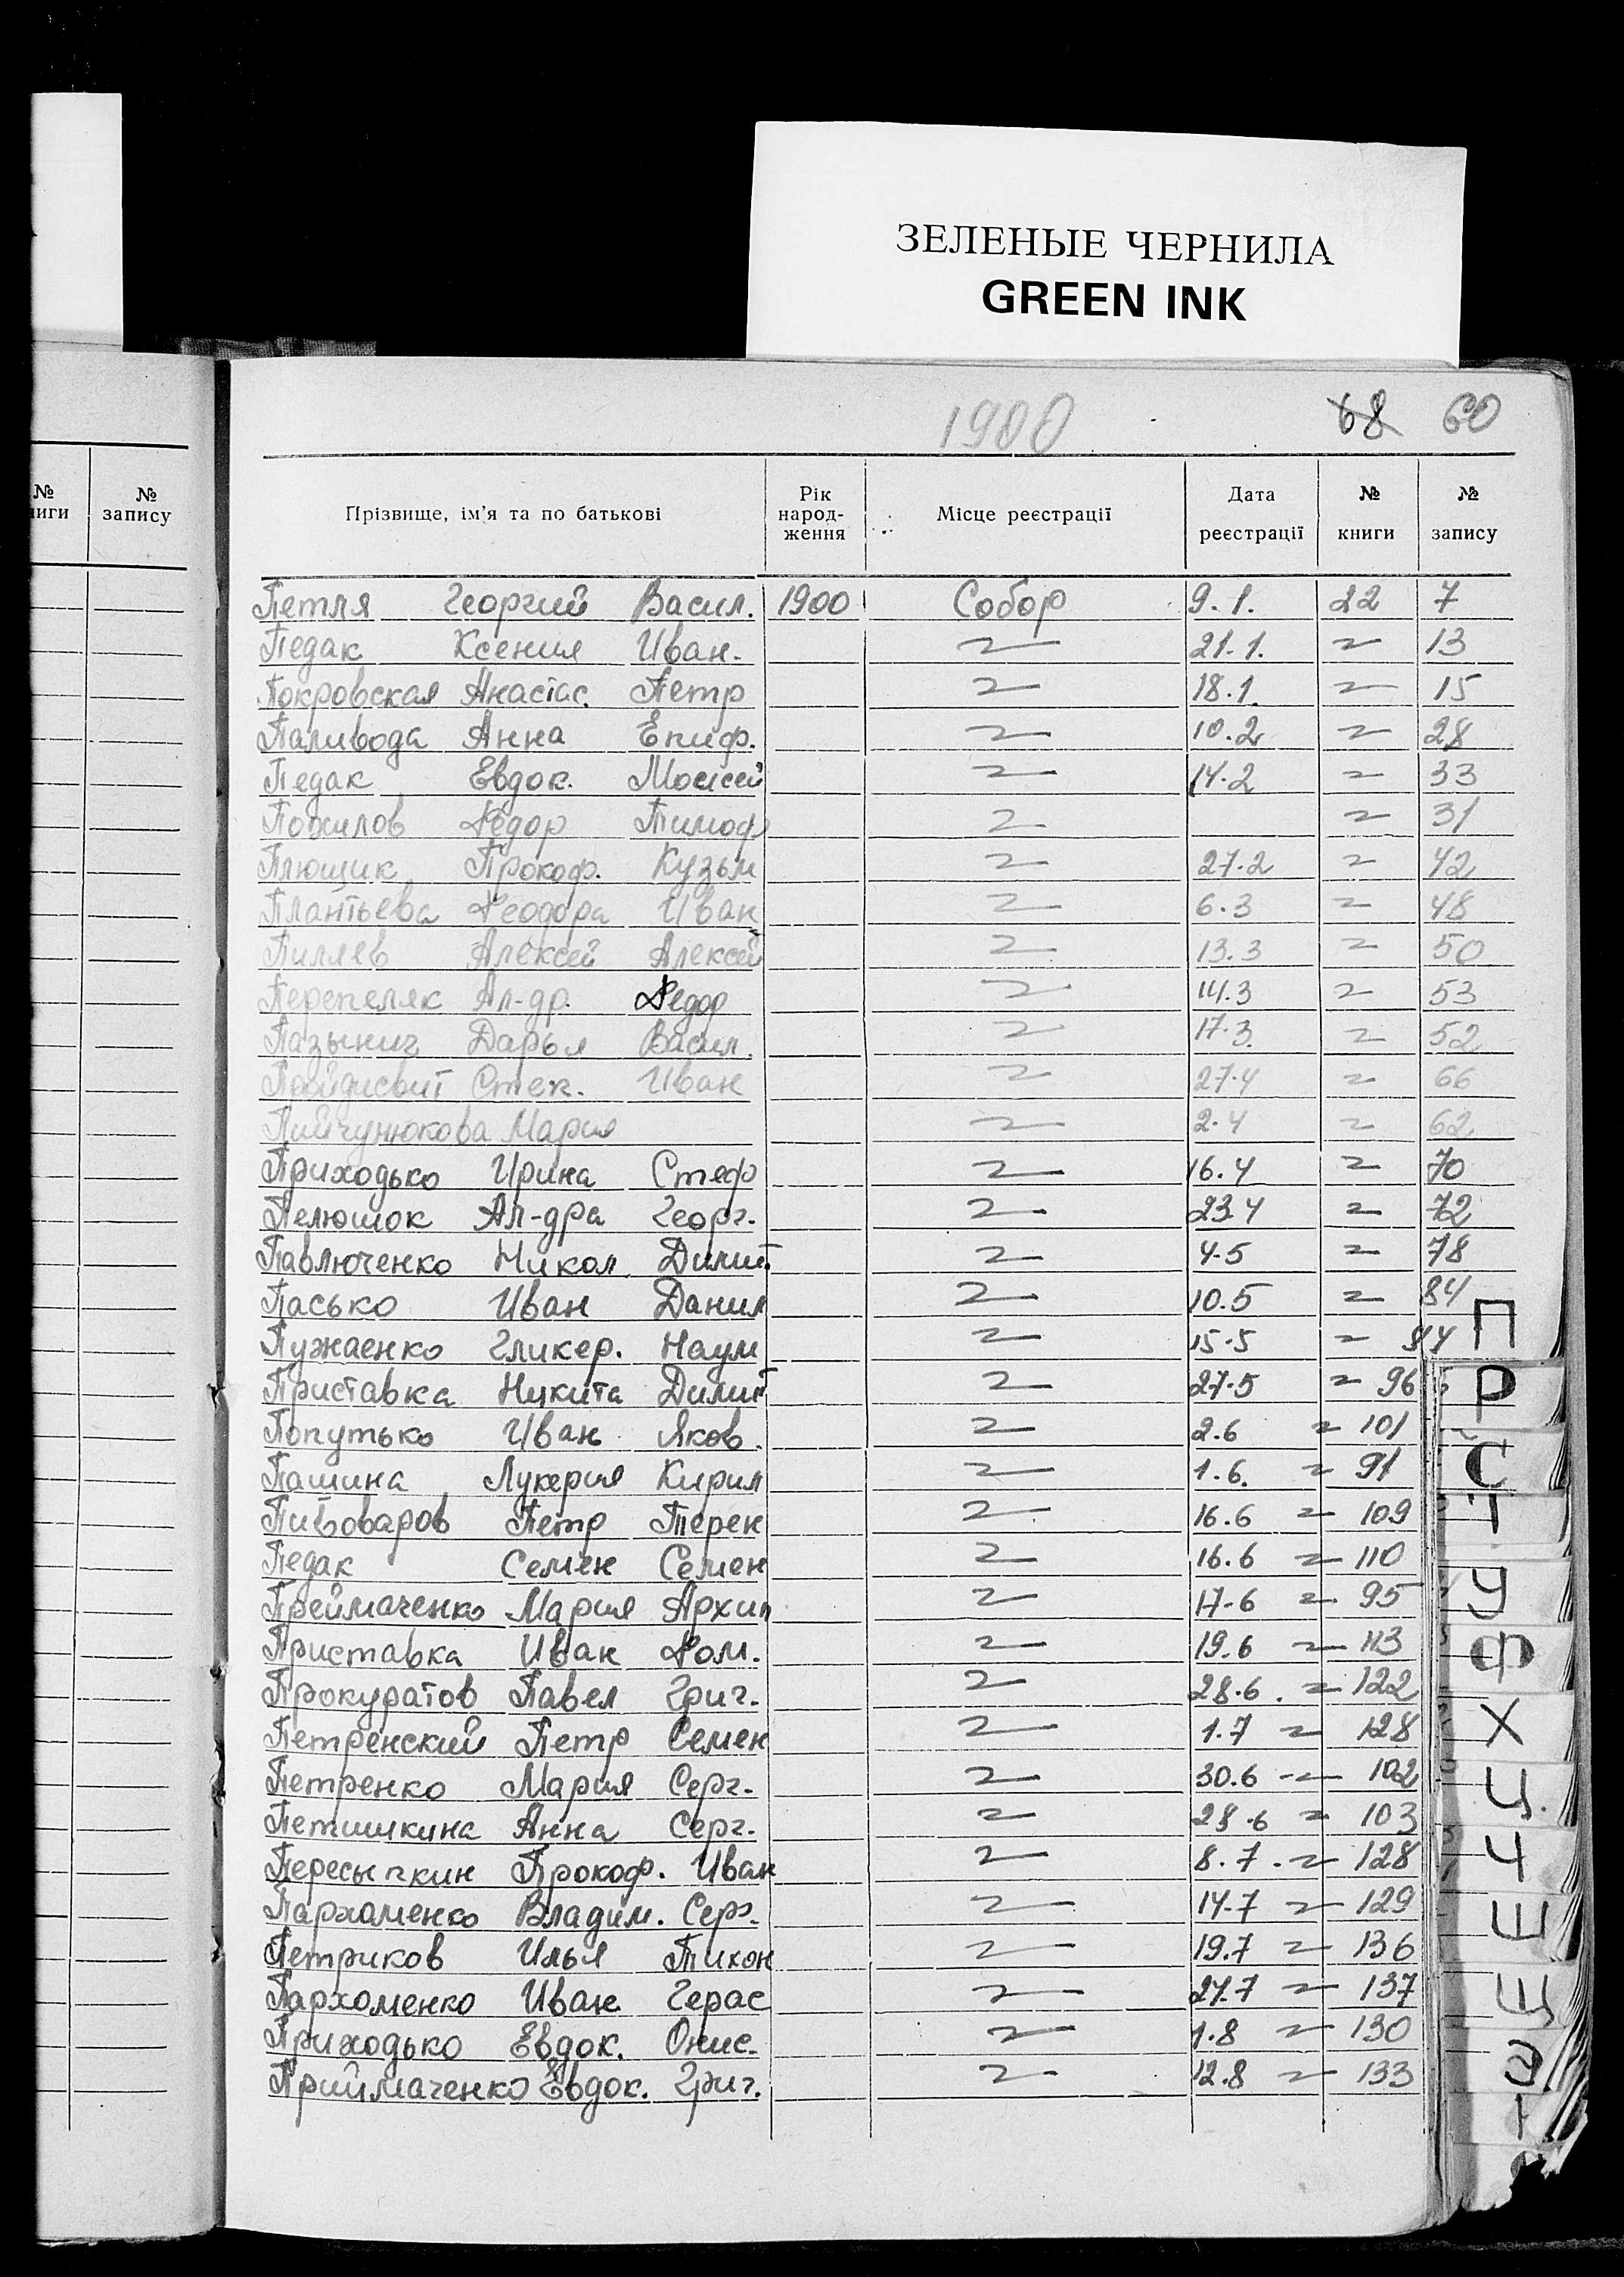 ЗЕЛЕНЫЕ ЧЕРНИЛА
GREEN INK
1900 68 60
№ книги № запису
Прізвище, ім'я та по батькові Рік народ-ження Місце реєстрації Дата реєстрації № книги № запису
Петля Георгий Васил. 1900 Собор 9.1. 22 7
Педак Ксения Иван. 〃 21.1. 〃 13
Покровская Анастас. Петр 〃 18.1. 〃 15
Паливода Анна Епиф. 〃 10.2 〃 28
Педак Евдок. Моисей 〃 14.2 〃 33
Федор Тимоф 〃 〃 31
Плющик Прокоф. Кузьм 〃 27.2 〃 42
Плантьева Феодора Иван 〃 6.3 〃 48
Пиляев Алексей Алексей 〃 13.3 〃 50
Перепеляк Ал-др. Федор 〃 14.3 〃 53
Пазынич Дарья Васил. 〃 17.3. 〃 52
Степ. Иван 〃 27.4 〃 66
Мария 〃 2.4 〃 62
Приходько Ирина Стеф 〃 16.4 〃 70
Пелюшок Ал-дра Георг. 〃 23.4 〃 72
Павлюченко Никол. Димит 〃 4.5 〃 78
Пасько Иван Данил 〃 10.5 〃 84
Пужаенко Гликер. Наум 〃 15.5 〃
Приставка Никита Димит 〃 27.5 〃 96
Попутько Иван Яков. 〃 2.6 〃 101
Пашина Лукерия Кирил 〃 1.6. 〃 91
Пивоваров Петр Терен 〃 16.6 〃 109
Педак Семен Семен 〃 16.6 〃 110
Преймаченко Мария Архип 〃 17.6 〃 95
Приставка Иван Фом. 〃 19.6 〃 113
Прокуратов Павел Григ. 〃 28.6. 〃 122
Петренский Петр Семен 〃 1.7 〃 128
Петренко Мария Серг. 〃 30.6 〃 102
Петишкина Анна Серг. 〃 28.6 〃 103
Пересыпкин Прокоф. Иван 〃 8.7. 〃 128
Пархоменко Владим. Серг. 〃 14.7 〃 129
Петриков Илья Тихон 〃 19.7 〃 136
Пархоменко Иван Герас 〃 27.7 〃 137
Приходько Евдок. Онис. 〃 1.8 〃 130
Прийmаченко Евдок. Григ. 〃 12.8 〃 133
П
Р
С
Т
У
Ф
Х
Ц.
Ч
Ш
Щ
Э